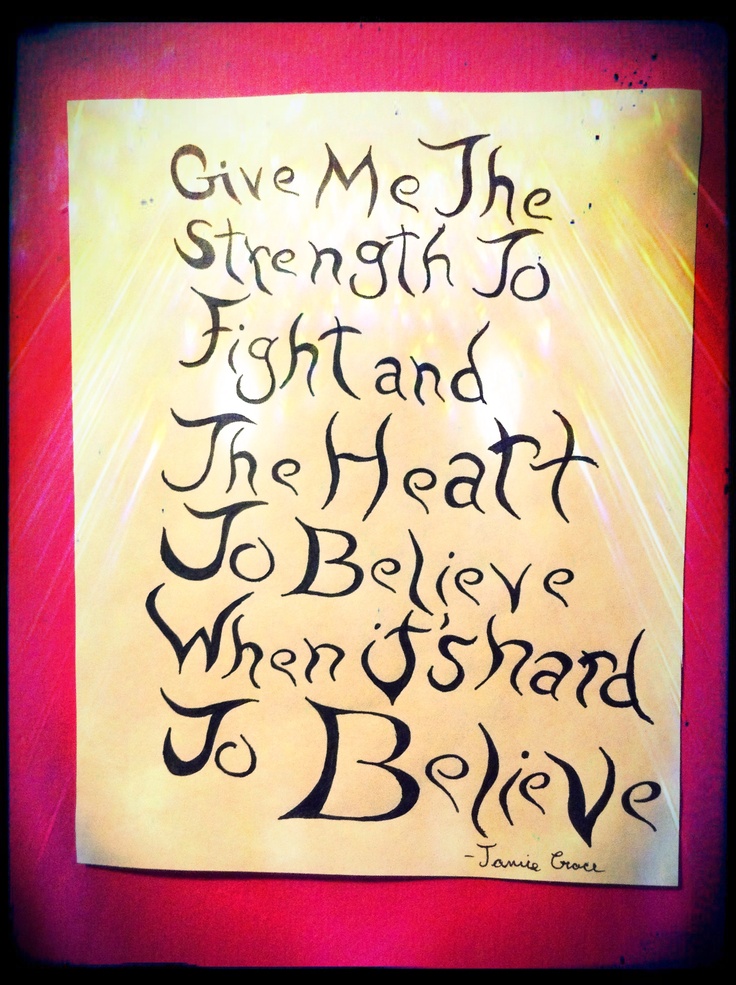 Give Me The
Strength To
Fight and
The Heart
To Believe
When it's hard
To Believe
-Jamie Croce